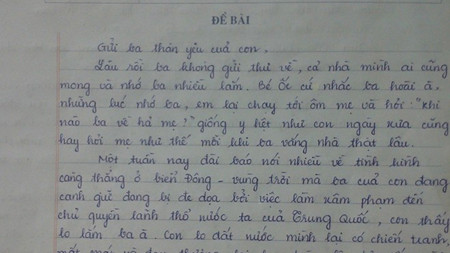 ĐỀ BÀI
Gửi ba thân yêu của con,
Lâu rồi ba không gửi thư về, cả nhà mình ai cũng
mong và nhớ ba nhiều lắm. Bé Ốc cứ nhắc ba hoài à,
những lúc nhớ ba, em lại chạy tới ôm mẹ và hỏi: "Khi
nào ba về hả mẹ?" giống y hệt như con ngày xưa cũng
hay hỏi mẹ như thế mỗi khi ba vắng nhà thật lâu.
Một tuần nay đài báo nói nhiều về tình hình
căng thẳng ở biển Đông - vùng trời mà ba của con đang
canh giữ đang bị đe dọa bởi việc làm xâm phạm đến
chủ quyền lãnh thổ nước ta của Trung Quốc, con thấy
lo lắm ba ạ. Con lo đất nước mình lại có chiến tranh,
mất mát và đau thương